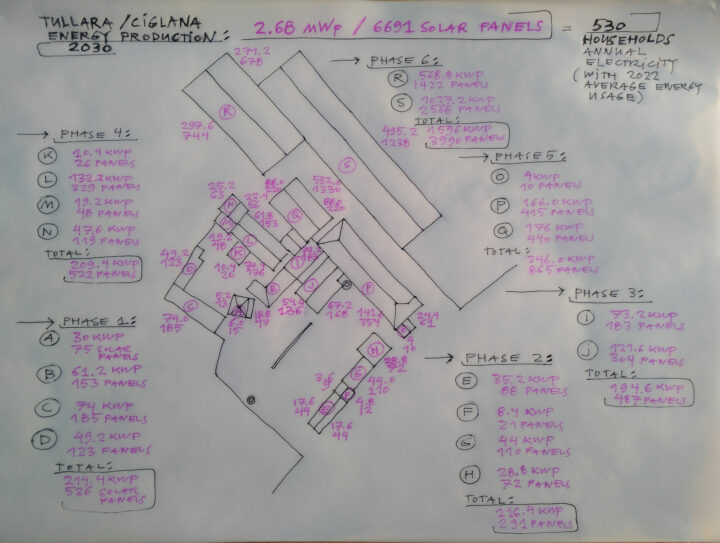 TULLARA / CIGLANA
ENERGY PRODUCTION:
2030
2.68 MWp / 6691 SOLAR PANELS
= 530
HOUSEHOLDS
ANNUAL
ELECTRICITY
(WITH 2022
AVERAGE ENERGY
USAGE)
PHASE 6:
R 568.8 KWP
1422 PANELS
S 1027.2 KWP
2568 PANELS
TOTAL:
1596 KWP
3990 PANELS
PHASE 4:
K 10.4 KWP
26 PANELS
L 132.2 KWP
329 PANELS
M 19.2 KWP
48 PANELS
N 47.6 KWP
119 PANELS
TOTAL:
209.4 KWP
522 PANELS
PHASE 5:
O 4 KWP
10 PANELS
P 166.0 KWP
415 PANELS
Q 176 KWP
440 PANELS
TOTAL:
346.0 KWP
865 PANELS
PHASE 1:
A 30 KWP
75 SOLAR
PANELS
B 61.2 KWP
153 PANELS
C 74 KWP
185 PANELS
D 49.2 KWP
123 PANELS
TOTAL:
214.4 KWP
536 SOLAR
PANELS
PHASE 3:
I 73.2 KWP
183 PANELS
J 121.6 KWP
304 PANELS
TOTAL:
194.6 KWP
487 PANELS
PHASE 2:
E 35.2 KWP
88 PANELS
F 8.4 KWP
21 PANELS
G 44 KWP
110 PANELS
H 28.8 KWP
72 PANELS
TOTAL:
116.4 KWP
291 PANELS
271.2
678
R
297.6
744
S
495.2
1238
532.0
1330
88.0
220
88.0
220
Q
25.2
63
N
22.4
56
M
61.8
153
L
19.2
48
K
10.4
26
70.4
176
I
73.2
183
49.2
123
D
C
74.0
185
5.2
13
6.0
15
18.8
47
B
J
136
67.2
168
P
141.6
354
24.4
61
4
10
H
28.8
72
G
44.0
110
3.6
9
F
4.8
12
17.6
44
E
17.6
44